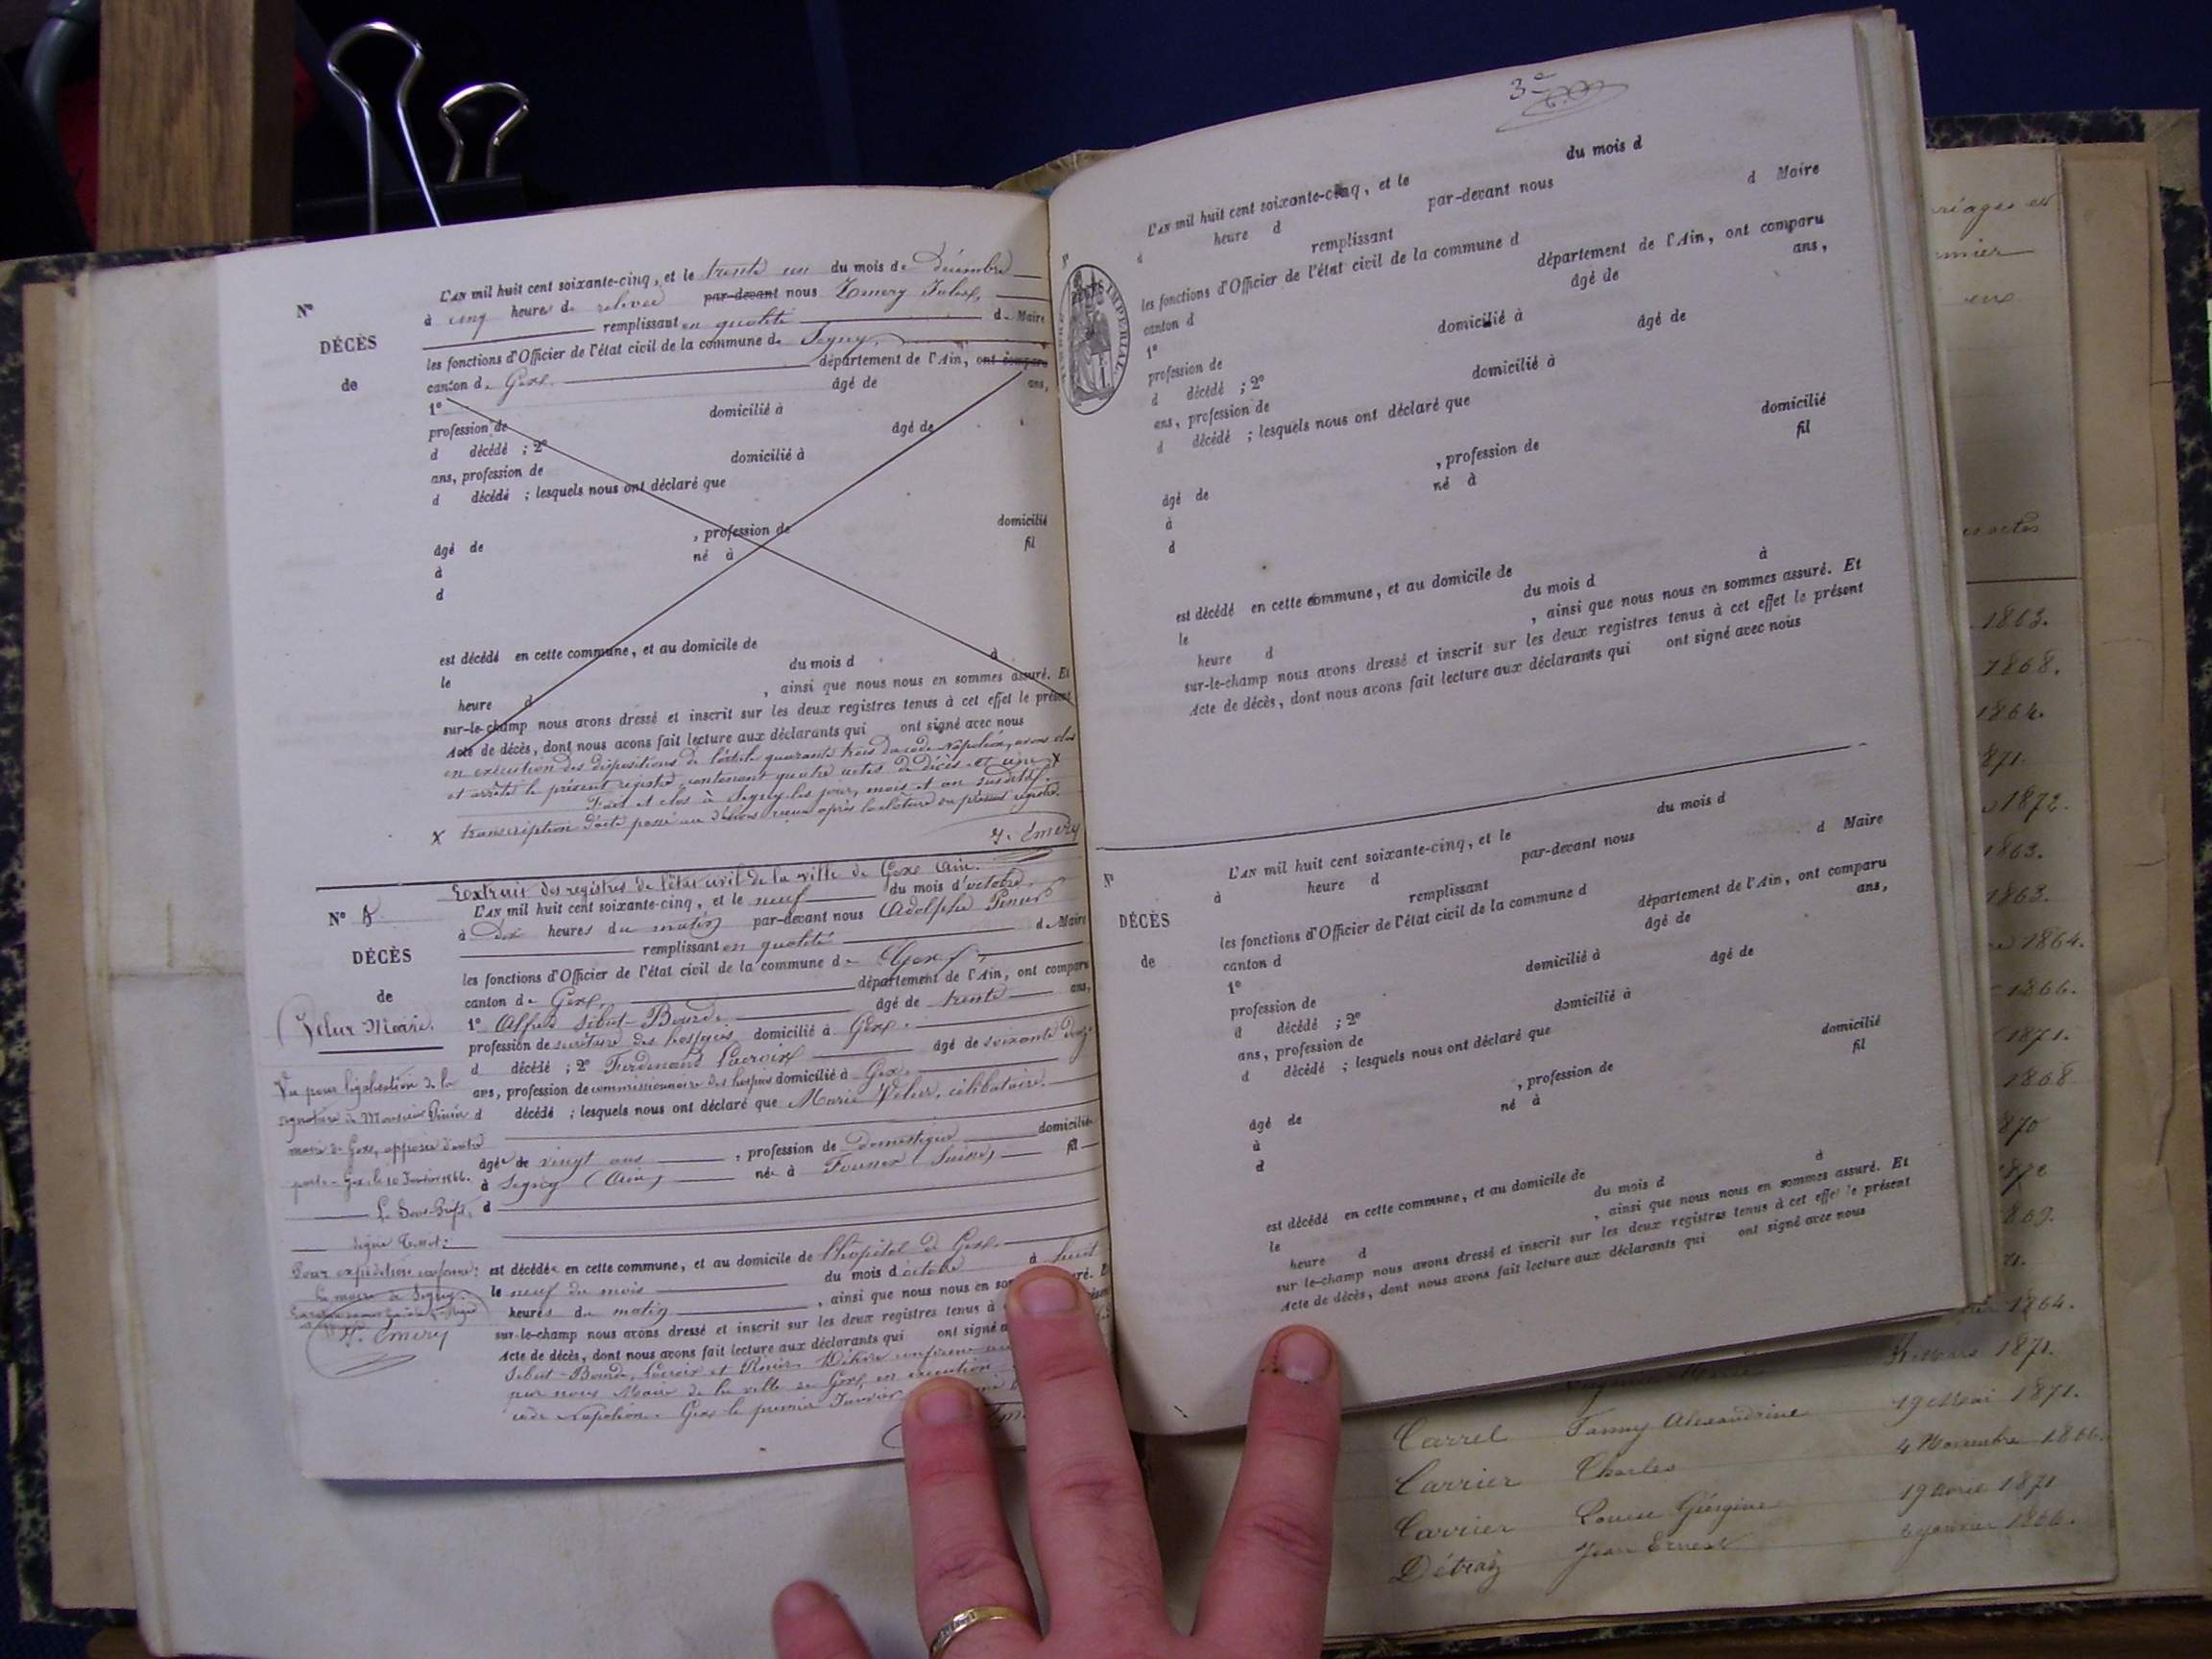 N°
DÉCÈS
de
L'AN mil huit cent soixante-cinq, et le trente un du mois de Décembre
à cinq heures de relevée par-devant nous Emery Jules,
remplissant en qualité de Maire
les fonctions d'Officier de l'état civil de la commune de Segny,
canton de Gex. département de l'Ain, ont comparu
1° âgé de ans,
profession de domicilié à
d décédé ; 2° âgé de
ans, profession de domicilié à
d décédé ; lesquels nous ont déclaré que
âgé de , profession de domicilié
à né à fil
d
est décédé en cette commune, et au domicile de
le du mois d à
heure d , ainsi que nous nous en sommes assuré. Et
sur-le-champ nous avons dressé et inscrit sur les deux registres tenus à cet effet le présent
Acte de décès, dont nous avons fait lecture aux déclarants qui ont signé avec nous
en exécution des dispositions de l'article quarante trois du code Napoléon, avons clos
et arrêté le présent registre, contenant quatre actes de décès et une X
Fait et clos à Segny les jour, mois et an susdits.
X transcription d'acte passé au dehors reçue après la clôture du présent registre.
J. Emery
Extrait des registres de l'état civil de la ville de Gex Ain.
N° 5
DÉCÈS
de
Velur Marie.
L'AN mil huit cent soixante-cinq, et le neuf du mois d'octobre
à Dix heures du matin par-devant nous Adolphe
remplissant en qualité de Maire
les fonctions d'Officier de l'état civil de la commune de Gex,
canton de Gex, département de l'Ain, ont comparu
1° Alfred Sibut-Bourde âgé de trente ans,
profession de secrétaire des hospices domicilié à Gex.
d décédé ; 2° Ferdinand Lacroix âgé de soixante douze
ans, profession de commissionnaire des hospices domicilié à Gex.
d décédé ; lesquels nous ont déclaré que Marie Velur, célibataire.
âgée de vingt ans , profession de domestique domiciliée
à Segny (Ain) née à (Suisse) fil
d
est décédée en cette commune, et au domicile de l'hôpital de Gex.
le neuf du mois du mois d'octobre à huit
heures du matin , ainsi que nous nous en
sur-le-champ nous avons dressé et inscrit sur les deux registres tenus à
Acte de décès, dont nous avons fait lecture aux déclarants qui ont signé
Sibut-Bourde, Lacroix et Délivré conforme
par nous Maire de la ville de Gex, en exécution
code Napoléon. Gex le premier Janvier
Vu pour légalisation de la
signature de Monsieur
maire de Gex, apposée d'autre
part. Gex, le 10 Janvier 1866.
Le Sous-Préfet,
Signé
Pour expédition conforme:
Le maire de Segny.
J. Emery
3e
L'AN mil huit cent soixante-cinq, et le du mois d
à heure d par-devant nous
remplissant d Maire
les fonctions d'Officier de l'état civil de la commune d
canton d département de l'Ain, ont comparu
1° âgé de ans,
profession de domicilié à
d décédé ; 2° âgé de
ans, profession de domicilié à
d décédé ; lesquels nous ont déclaré que
âgé de , profession de domicilié
à né à fil
d
est décédé en cette commune, et au domicile de
le du mois d à
heure d , ainsi que nous nous en sommes assuré. Et
sur-le-champ nous avons dressé et inscrit sur les deux registres tenus à cet effet le présent
Acte de décès, dont nous avons fait lecture aux déclarants qui ont signé avec nous
N°
DÉCÈS
de
L'AN mil huit cent soixante-cinq, et le du mois d
à heure d par-devant nous
remplissant d Maire
les fonctions d'Officier de l'état civil de la commune d
canton d département de l'Ain, ont comparu
1° âgé de ans,
profession de domicilié à
d décédé ; 2° âgé de
ans, profession de domicilié à
d décédé ; lesquels nous ont déclaré que
âgé de , profession de domicilié
à né à fil
d
est décédé en cette commune, et au domicile de
le du mois d à
heure d , ainsi que nous nous en sommes assuré. Et
sur-le-champ nous avons dressé et inscrit sur les deux registres tenus à cet effet le présent
Acte de décès, dont nous avons fait lecture aux déclarants qui ont signé avec nous
1863.
1868.
1864.
871.
1872.
1863.
1863.
1864.
1866.
1871.
1868
870
1864.
1871.
Carrel Fanny Alexandrine 19 Mai 1871.
Carrier Charles 4 Novembre 1866.
Carrier Louise Géorgine 19 avril 1871
Détraz Jean Ernest 1866.